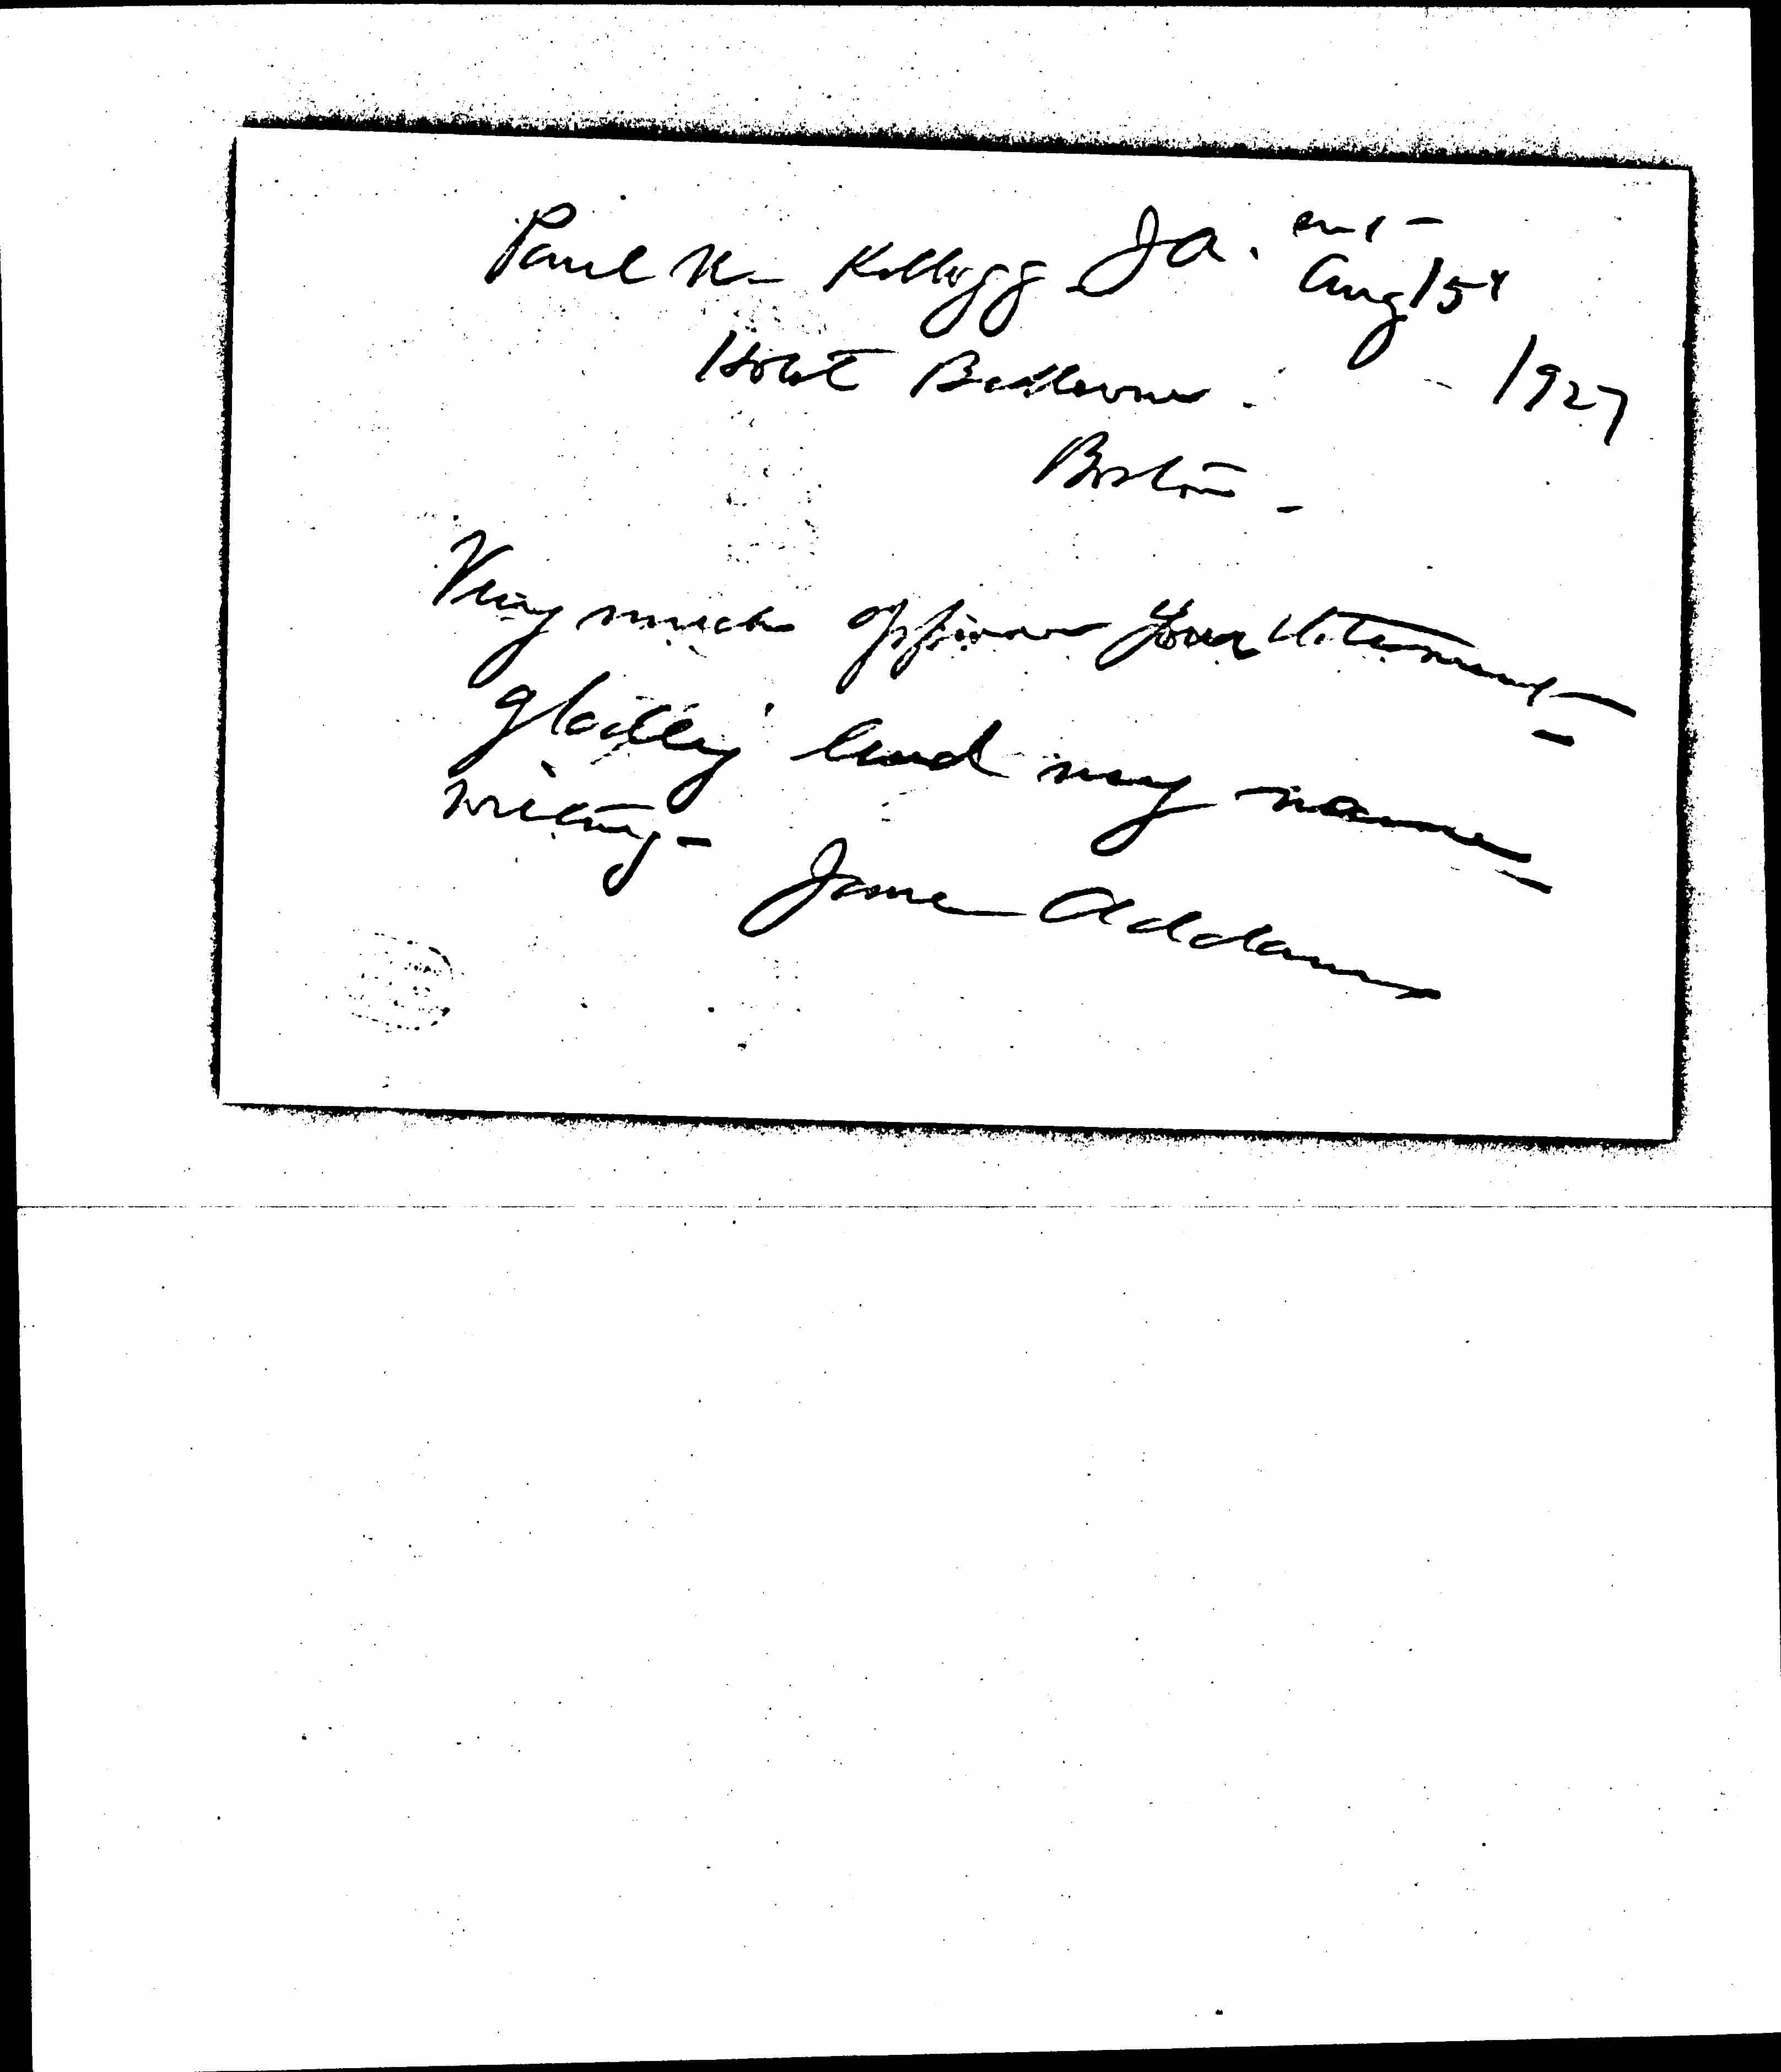 Paul U. Kellogg J A.
Aug 15"
Hotel Bellevue. 1927
Boston -
Very much approve your statement -
gladly lend my name -
writing -
Jane Addams